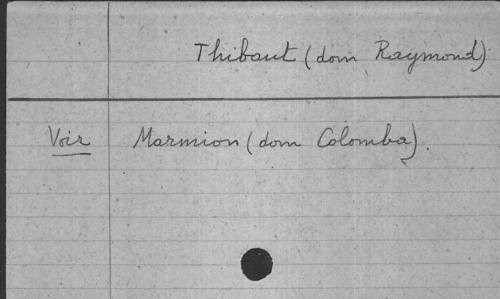 Thibaut (dom Raymond)
Voir Marmion (dom Colomba).